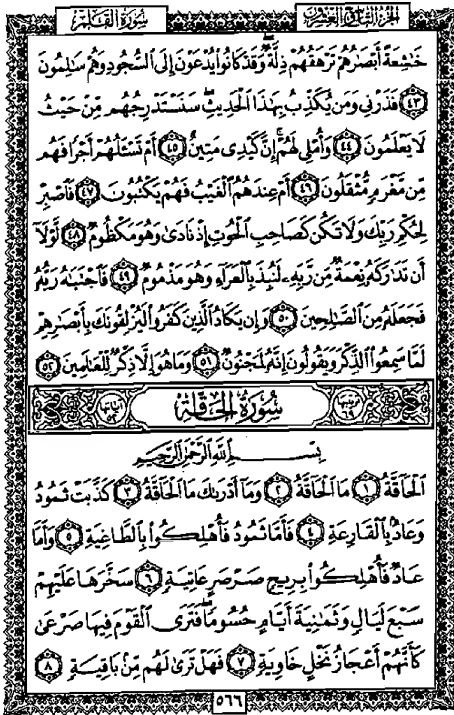 الجزء التاسع والعشرون
سُورَةُ القَلَمِ
خَٰشِعَةً أَبْصَٰرُهُمْ تَرْهَقُهُمْ ذِلَّةٌ ۖ وَقَدْ كَانُوا۟ يُدْعَوْنَ إِلَى ٱلسُّجُودِ وَهُمْ سَٰلِمُونَ
٤٣ فَذَرْنِى وَمَن يُكَذِّبُ بِهَٰذَا ٱلْحَدِيثِ ۖ سَنَسْتَدْرِجُهُم مِّنْ حَيْثُ
لَا يَعْلَمُونَ ٤٤ وَأُمْلِى لَهُمْ ۚ إِنَّ كَيْدِى مَتِينٌ ٤٥ أَمْ تَسْـَٔلُهُمْ أَجْرًا فَهُم
مِّن مَّغْرَمٍ مُّثْقَلُونَ ٤٦ أَمْ عِندَهُمُ ٱلْغَيْبُ فَهُمْ يَكْتُبُونَ ٤٧ فَٱصْبِرْ
لِحُكْمِ رَبِّكَ وَلَا تَكُن كَصَاحِبِ ٱلْحُوتِ إِذْ نَادَىٰ وَهُوَ مَكْظُومٌ ٤٨ لَّوْلَآ
أَن تَدَٰرَكَهُۥ نِعْمَةٌ مِّن رَّبِّهِۦ لَنُبِذَ بِٱلْعَرَآءِ وَهُوَ مَذْمُومٌ ٤٩ فَٱجْتَبَٰهُ رَبُّهُۥ
فَجَعَلَهُۥ مِنَ ٱلصَّٰلِحِينَ ٥٠ وَإِن يَكَادُ ٱلَّذِينَ كَفَرُوا۟ لَيُزْلِقُونَكَ بِأَبْصَٰرِهِمْ
لَمَّا سَمِعُوا۟ ٱلذِّكْرَ وَيَقُولُونَ إِنَّهُۥ لَمَجْنُونٌ ٥١ وَمَا هُوَ إِلَّا ذِكْرٌ لِّلْعَٰلَمِينَ ٥٢
ترتيبها ٦٩
سُورَةُ الحَاقَّةِ
آياتها ٥٢
بِسْمِ ٱللَّهِ ٱلرَّحْمَٰنِ ٱلرَّحِيمِ
ٱلْحَآقَّةُ ١ مَا ٱلْحَآقَّةُ ٢ وَمَآ أَدْرَىٰكَ مَا ٱلْحَآقَّةُ ٣ كَذَّبَتْ ثَمُودُ
وَعَادٌۢ بِٱلْقَارِعَةِ ٤ فَأَمَّا ثَمُودُ فَأُهْلِكُوا۟ بِٱلطَّاغِيَةِ ٥ وَأَمَّا
عَادٌ فَأُهْلِكُوا۟ بِرِيحٍ صَرْصَرٍ عَاتِيَةٍ ٦ سَخَّرَهَا عَلَيْهِمْ
سَبْعَ لَيَالٍ وَثَمَٰنِيَةَ أَيَّامٍ حُسُومًا ۖ فَتَرَى ٱلْقَوْمَ فِيهَا صَرْعَىٰ
كَأَنَّهُمْ أَعْجَازُ نَخْلٍ خَاوِيَةٍ ٧ فَهَلْ تَرَىٰ لَهُم مِّنۢ بَاقِيَةٍ ٨
٥٦٦